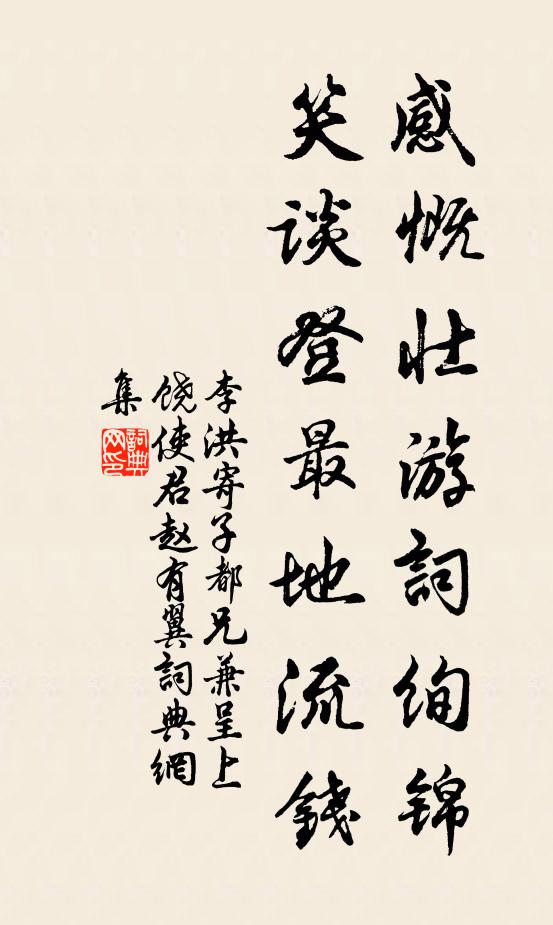 感慨壮游詞绚锦
笑谈登最地流錢
李洪寄子都兄兼呈上
饶使君赵有翼詞典網
集
詞典
网印